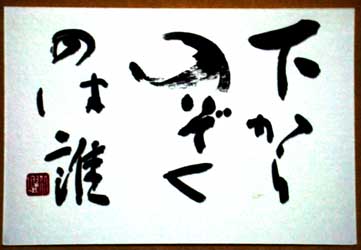 下から
のぞく
のは誰